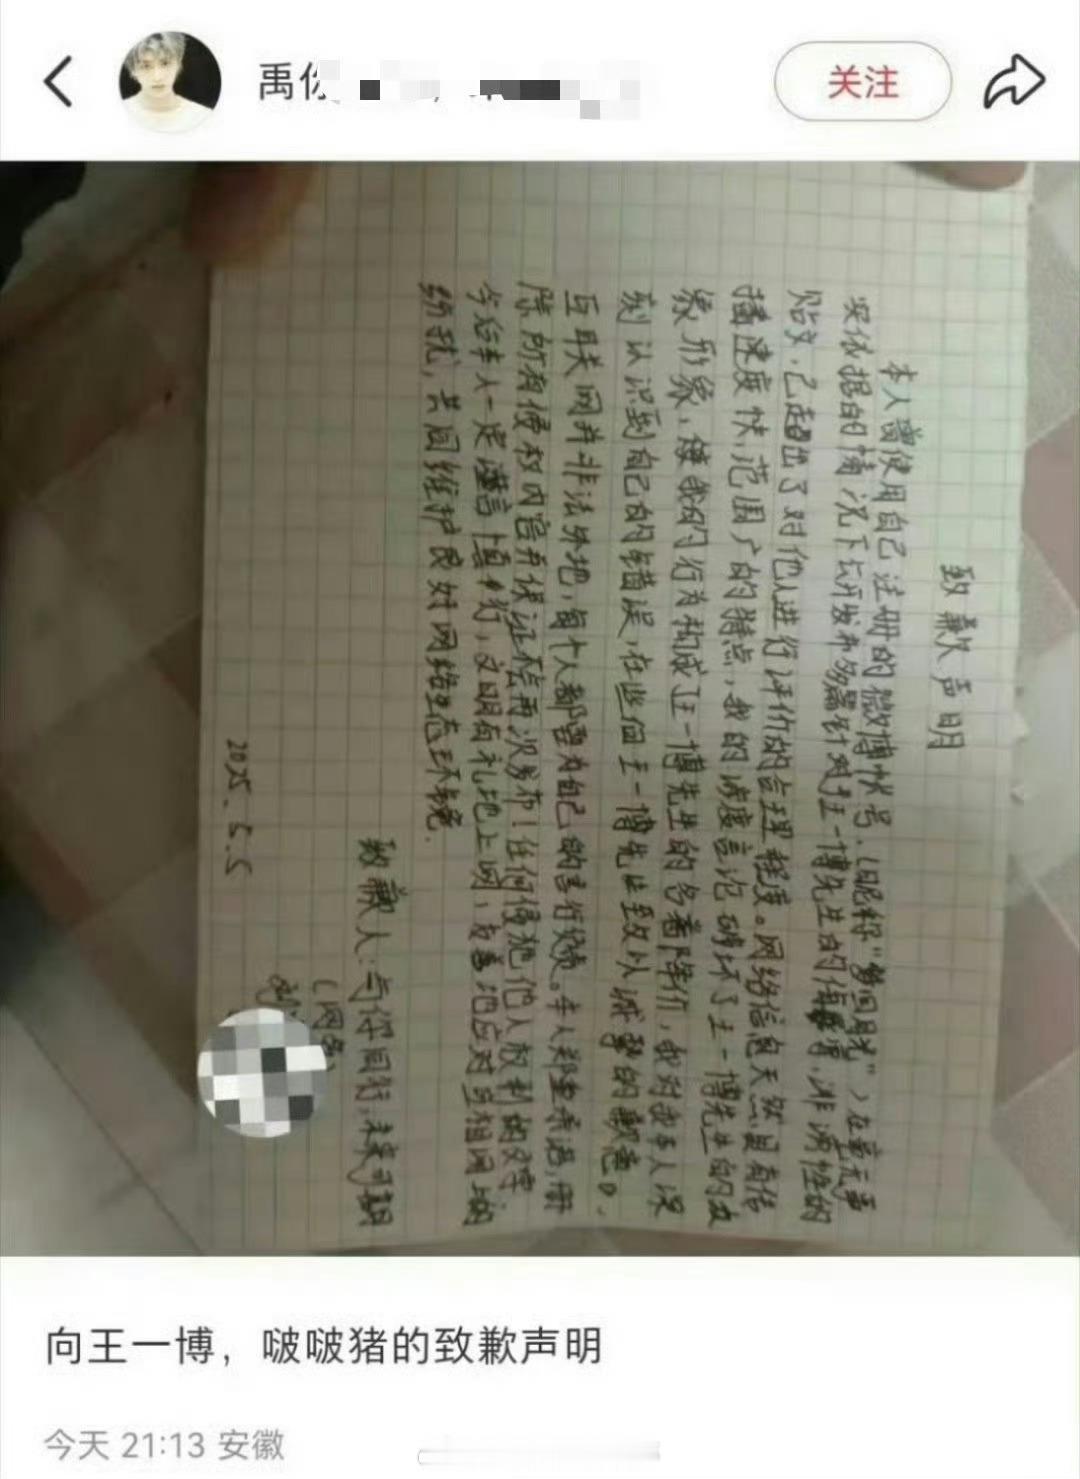 禹你
关注
致歉声明
本人曾使用自己注册的微博帐号,(昵称"梦回
实依据的情况下公开发布多篇针对王一博先生的侮辱,诽谤性的
贴文,已超出了对他人进行评价的合理程度。网络信息天然具有传
播速度快,范围广的特点,我的涉案言论破坏了王一博先生的公
众形象,使我的行为构成王一博先生的名誉降价,我对我本人深
刻认识到自己的错误,在此向王一博先生致以诚挚的歉意。
互联网并非法外地,每个人都要为自己的言行负责。本人郑重承诺,删
除所有侵权内容并保证不会再次发布!任何侵犯他人权利的文字
今后本人一定谨言慎行,文明有礼地上网,友善地应对互相网上的
纷扰,共同维护良好网络生态环境.
致歉人:与你同行,未来可期
(网名)
2025.5.5
向王一博,啵啵猪的致歉声明
今天 21:13 安徽